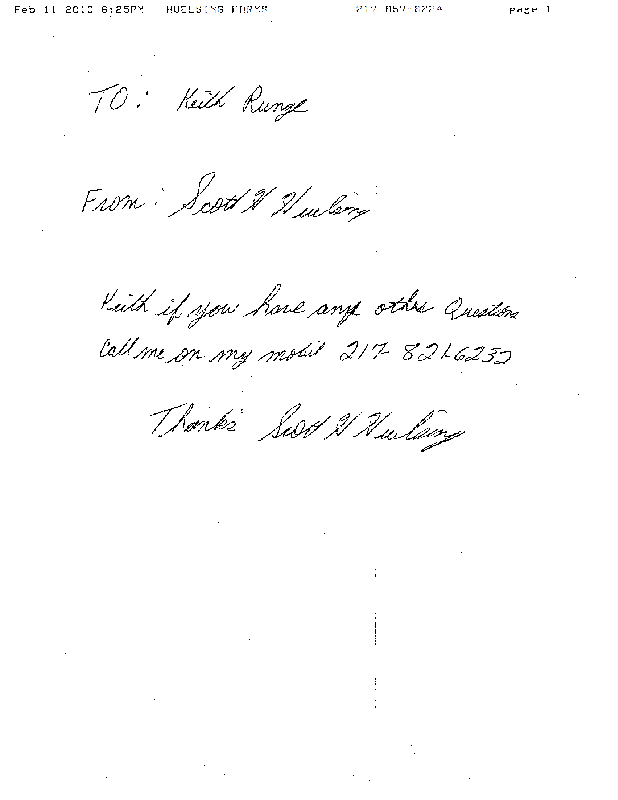 Feb 11 2010 6:25PM HUELSING FARMS page 1
TO: Keith Runge
From: Scott H Huelsing
Keith if you have any other Questions
Call me on my mobil 217-821-6232
Thanks Scott H Huelsing